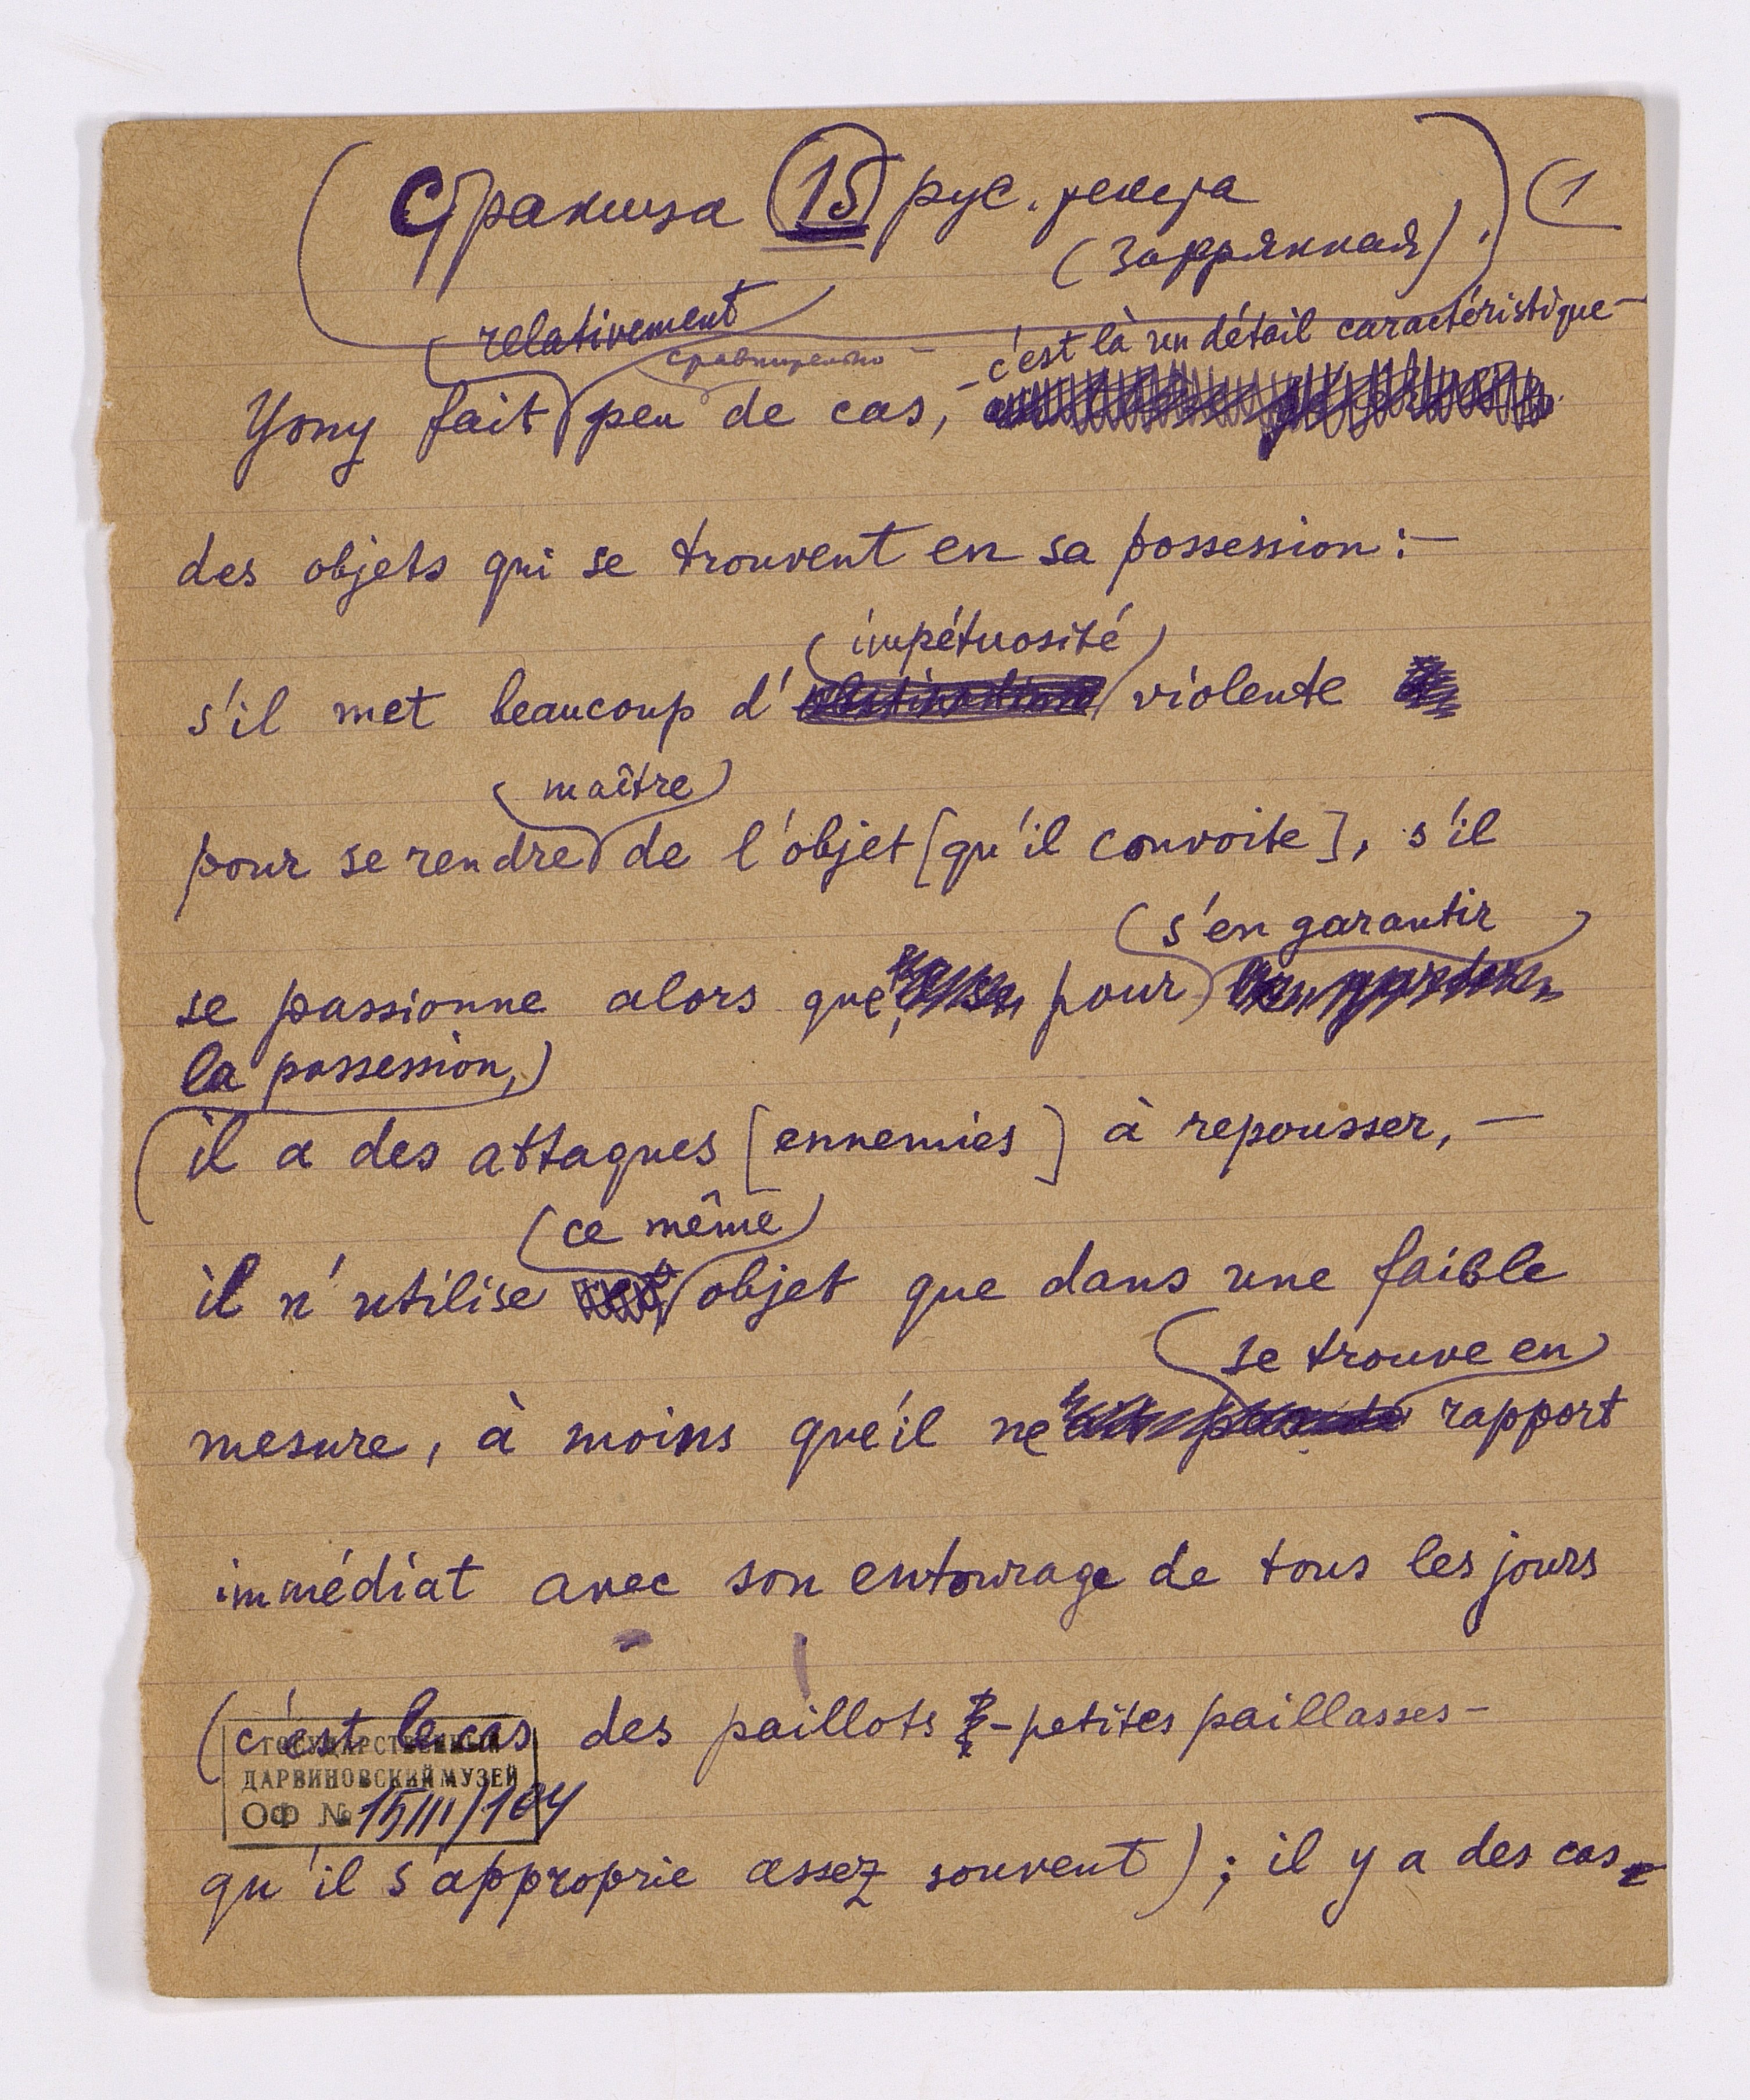 (Страница 15 рус. текста (1
(Затерянная).)
relativement
сравнительно –
– c'est là un détail caractéristique –
Yony fait peu de cas,
des objets qui se trouvent en sa possession : –
(impétuosité)
s'il met beaucoup d' violente
(maître)
pour se rendre de l'objet [qu'il convoite], s'il
(s'en garantir
se passionne alors que, pour
la possession,)
il a des attaques [ennemies] à repousser, –
(ce même)
il n'utilise objet que dans une faible
(se trouve en)
mesure, à moins qu'il ne rapport
immédiat avec son entourage de tous les jours
(c'est le cas des paillots – petites paillasses –
ГОСУДАРСТВЕННЫЙ
ДАРВИНОВСКИЙ МУЗЕЙ
ОФ № 15111/164
qu'il s'approprie assez souvent) ; il y a des cas